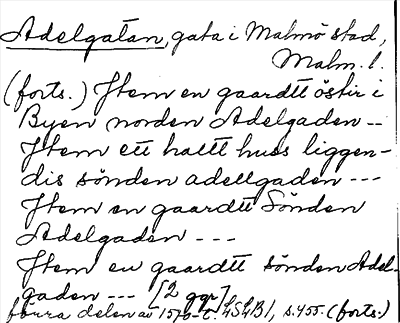 Adelgatan, gata i Malmö stad,
Malm. l.
(forts.) Jtem en gaardtt östir i
Byen norden Adelgaden --
Jtem ett haltt huss liggen-
dis sönden adellgaden ---
Jtem en gaardtt Sönden
Adelgaden ---
Jtem en gaardtt sönden Adel-
gaden --- [2 ggr]
förra delen av 1570-t. LSLB1, s. 455. (forts.)